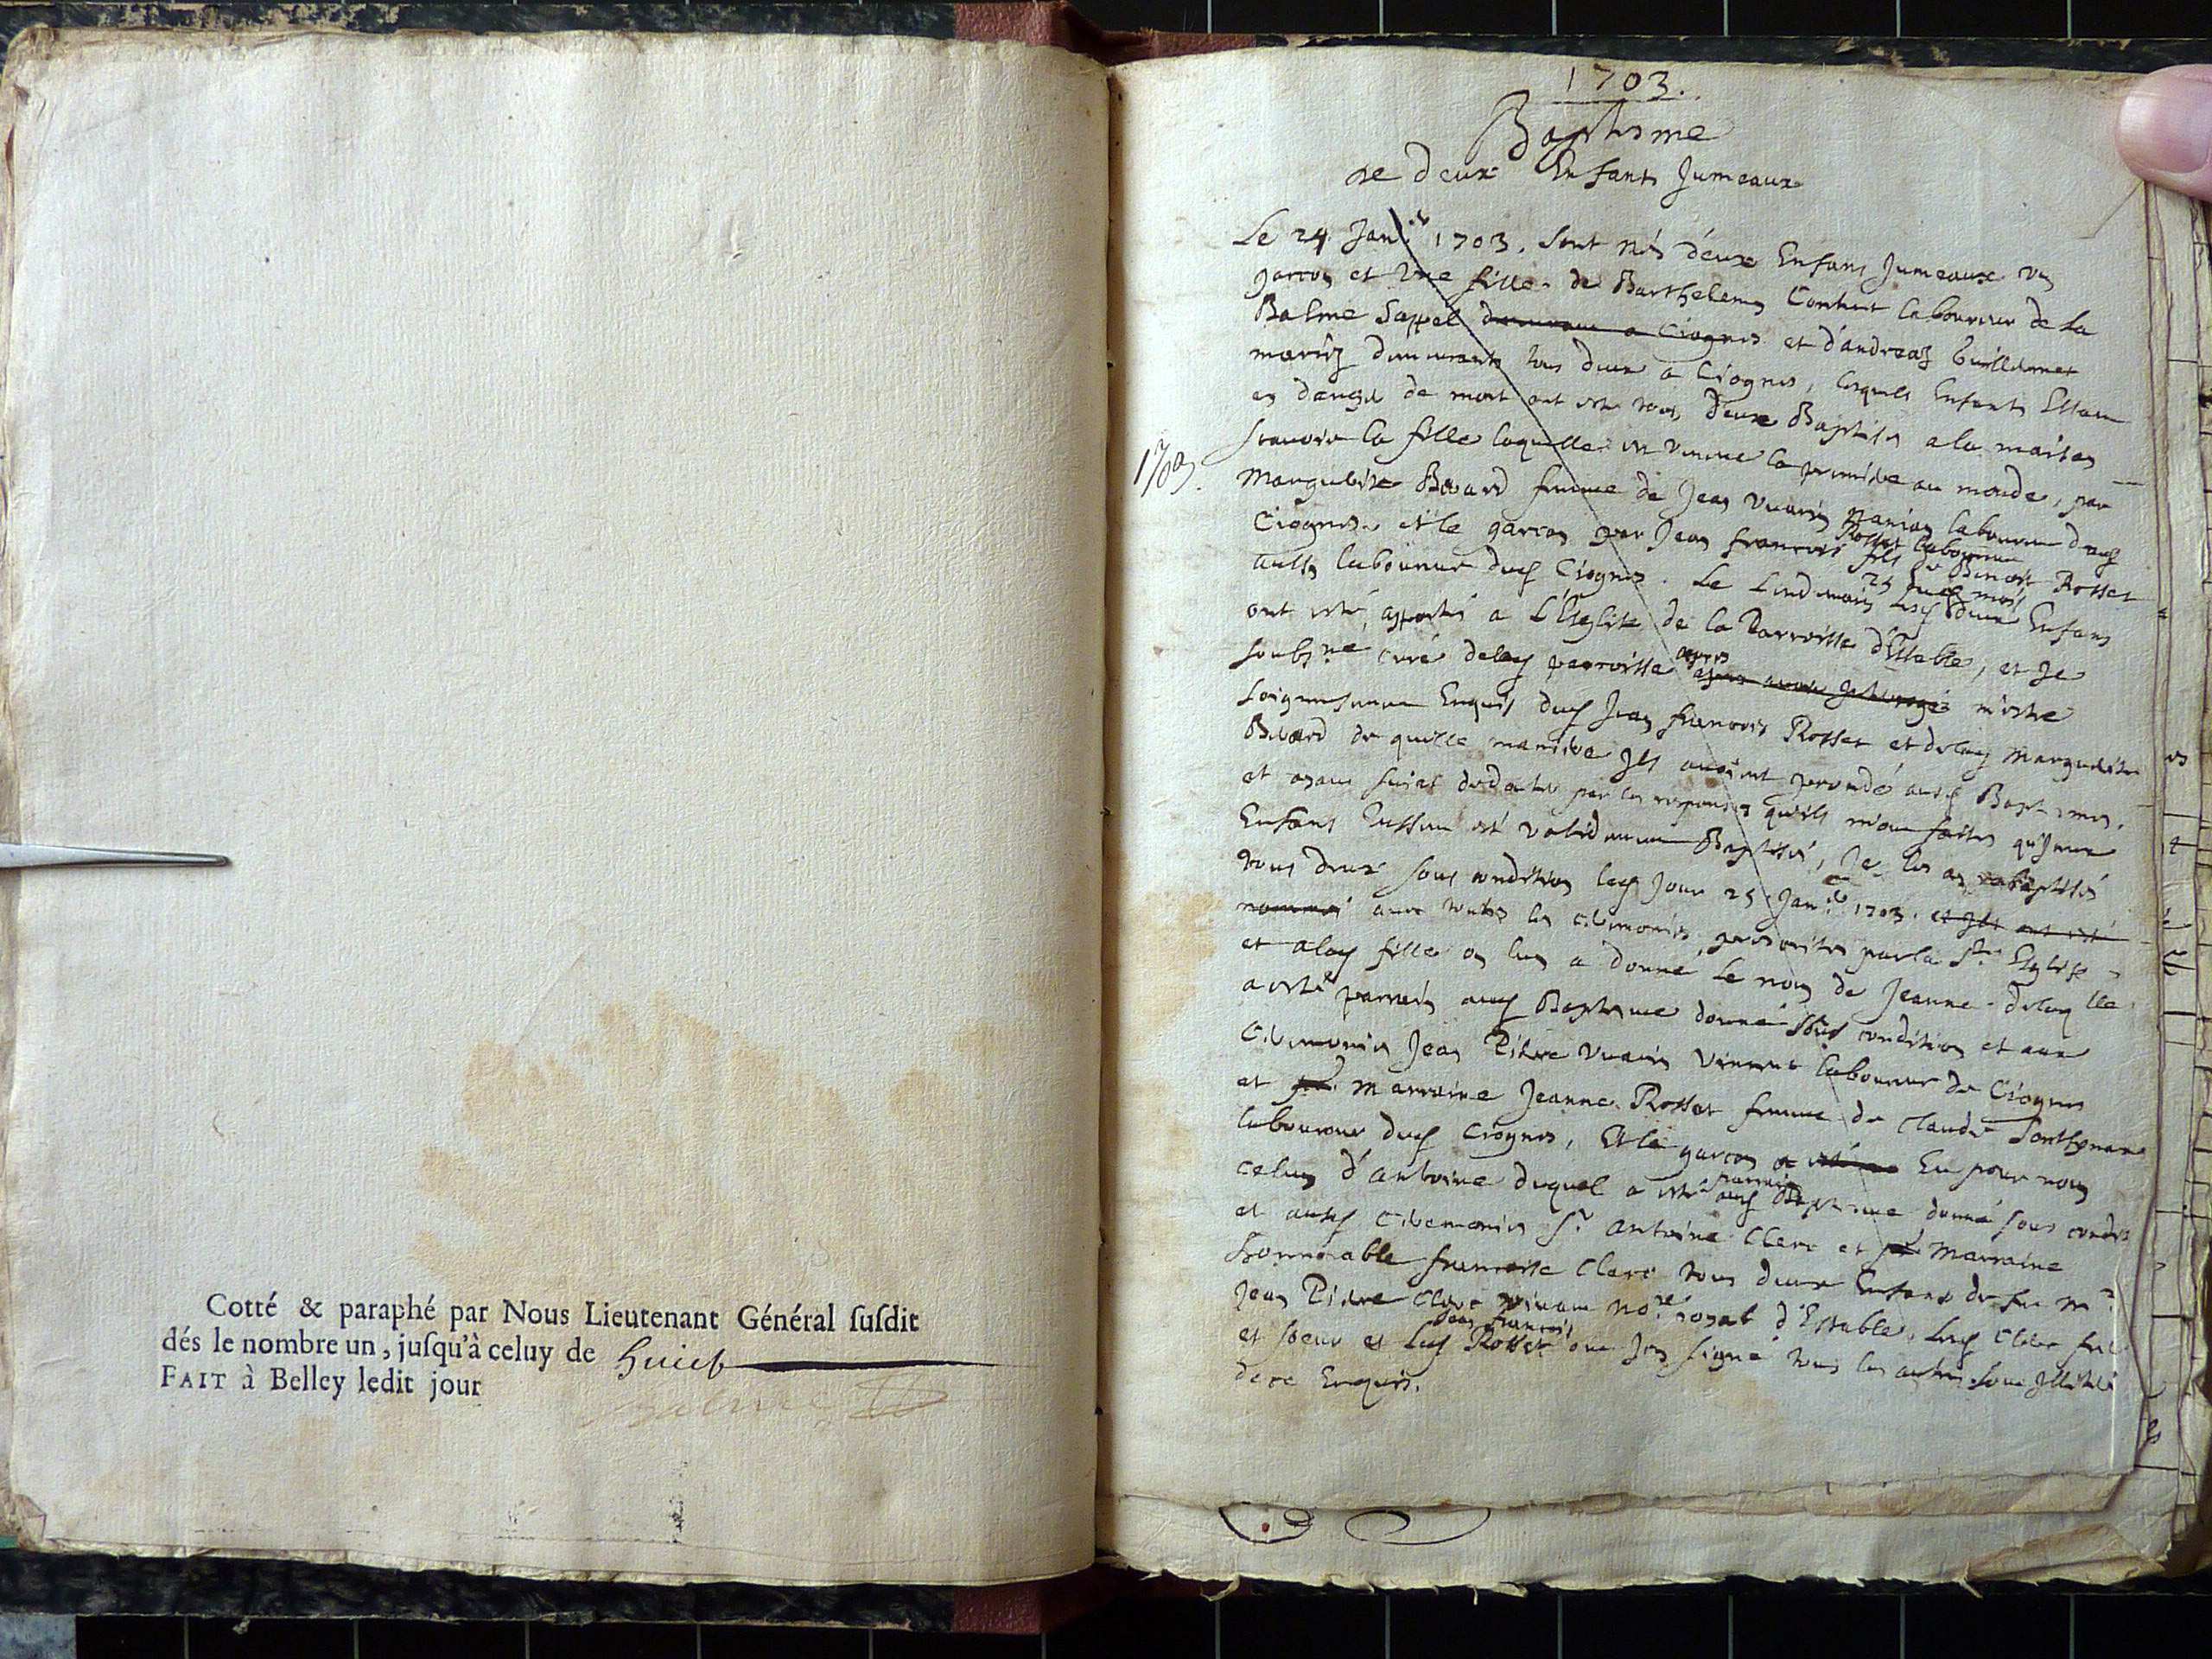 Cotté & paraphé par Nous Lieutenant Général ſuſdit
dés le nombre un, juſqu'à celuy de huict
FAIT à Belley ledit jour
1703.
Baptisme
de deux Enfants Jumeaux
Le 24. Jan.r 1703. sont nés deux Enfans Jumeaux un
garcon et une fille de Barthelemy laboureur de la
Balme Sappel demeurant a Ciognes et d'andreaz Guillermet
mariez demeurants tous deux a Ciognes, lesquels Enfants Estant
en danger de mort ont esté tous deux Baptisés a la maison
1703.
scauoir la fille laquelle est venue la premiere au monde, par
Marguerite Bavard femme de Jean Vuarin laboureur dud
Ciognes. et le garcon par Jean francois fils de Benoit Rosset
Rosset laboureur
aussy laboureur dud Ciognes. Le Lendemain lesd deux Enfans
25 dud mois
ont esté apportés a L'Eglise de la Parroisse d'Estable, et Je
soubs.né curé delad parroisse apres m'estre
soigneusement Enquis dud Jean francois Rosset et delad marguerite
Bavard de quelle maniere Ils auoient procedé aud Baptesmes.
et ayant suiet de douter par les responses qu'ils m'ont faites que
Enfans Eussent esté validement Baptisés, Je les ay rebaptisés
tous deux sous condition led Jour 25 Jan.er 1703. et Ils ont esté
nommés auec toutes les ceremonies prescrites par la S.te Eglise
et alad fille on luy a donné le nom de Jeanne delaquelle
a esté parrein aud Baptesme donné sous condition et aux
Ceremonies Jean Pierre Vuarin laboureur de Ciognes
et marraine Jeanne Rosset femme de Claude
laboureur dud Ciognes, Et le garcon a Eu pour nom
celuy d'antoine duquel a esté parrein aud Baptesme donné sous condi
et ausd Ceremonies S.r antoine Clerc et marraine
honnorable francoise Clerc tous deux Enfans de feu m.e
Jean Pierre Clerc viuant no.re royal d'Estable. Lesd Clerc frere
et soeur et led Jean francois Rosset ont Icy signé tous les autres sont Illiterés
de ce Enquis.